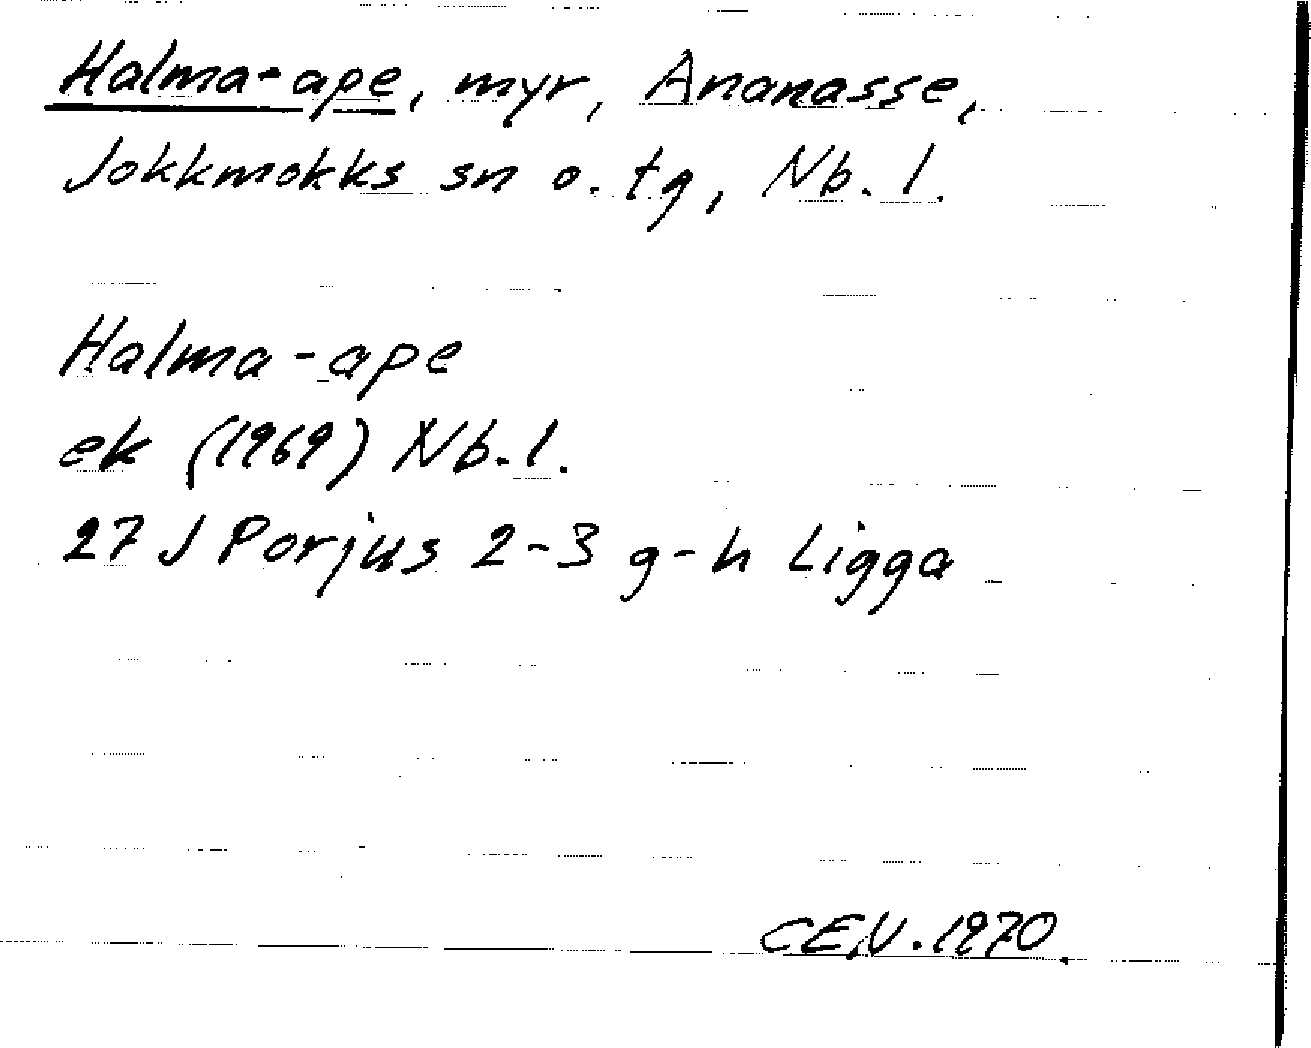 Halma-ape, myr, Ananasse,
Jokkmokks sn o. tg, Nb. l.
Halma-ape
ek (1969) Nb. l.
27 J Porjus 2-3 g-h Ligga
CEN. 1970.